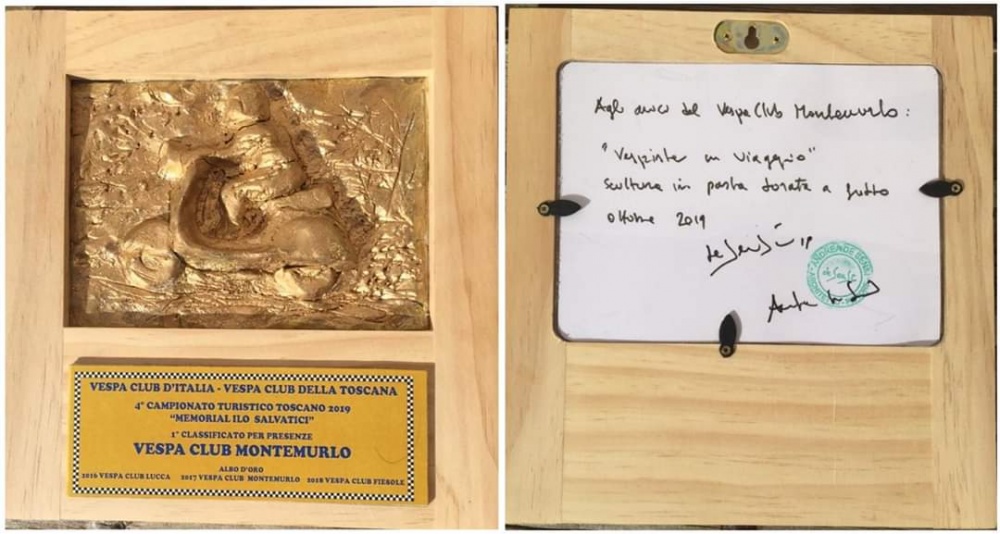 VESPA CLUB D'ITALIA - VESPA CLUB DELLA TOSCANA
4° CAMPIONATO TURISTICO TOSCANO 2019
"MEMORIAL ILO SALVATICI"
1° CLASSIFICATO PER PRESENZE
VESPA CLUB MONTEMURLO
ALBO D'ORO
2016 VESPA CLUB LUCCA 2017 VESPA CLUB MONTEMURLO 2018 VESPA CLUB FIESOLE
Agli amici del Vespa Club Montemurlo:
"Vespista in viaggio"
scultura in pasta dorata a freddo
ottobre 2019